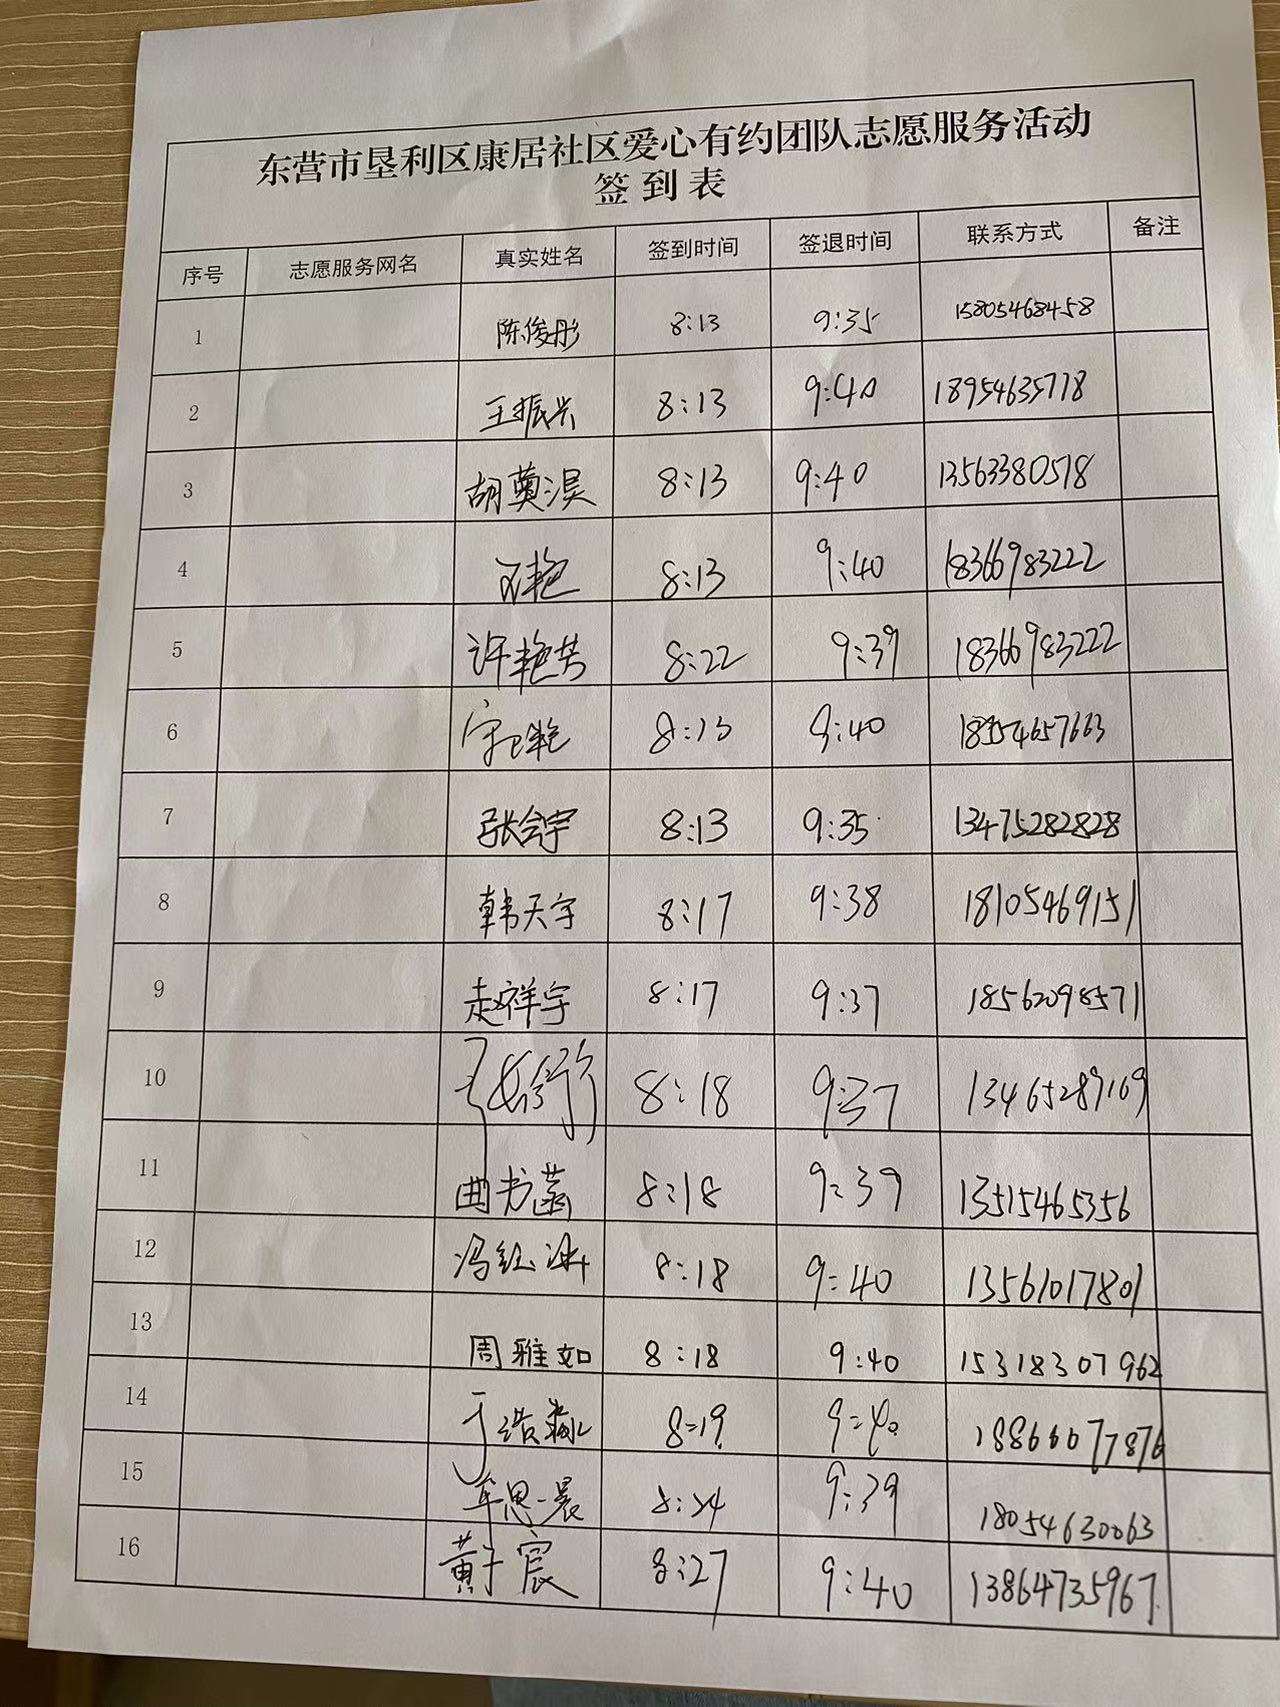 东营市垦利区康居社区爱心有约团队志愿服务活动
签到表
序号 志愿服务网名 真实姓名 签到时间 签退时间 联系方式 备注
1 陈俊彤 8:13 9:35 15805468458
2 王振兴 8:13 9:40 18954635778
3 胡 8:13 9:40 13563380578
4 艳 8:13 9:40 18366983222
5 许艳芳 8:22 9:39 18366983222
6 艳 8:13 9:40
7 张含宇 8:13 9:35 13475282828
8 韩天宇 8:17 9:38 18105469151
9 赵祥宇 8:17 9:37 18562098571
10 8:18 9:37 13465289169
11 曲书菡 8:18 9:39 13515465356
12 冯红冰 8:18 9:40 13561017801
13 周雅如 8:18 9:40 15318307962
14 于浩 8=19 9=40 18866077876
15 牟思晨 8:24 9:39 18054630063
16 黄子宸 8:27 9:40 13864735967